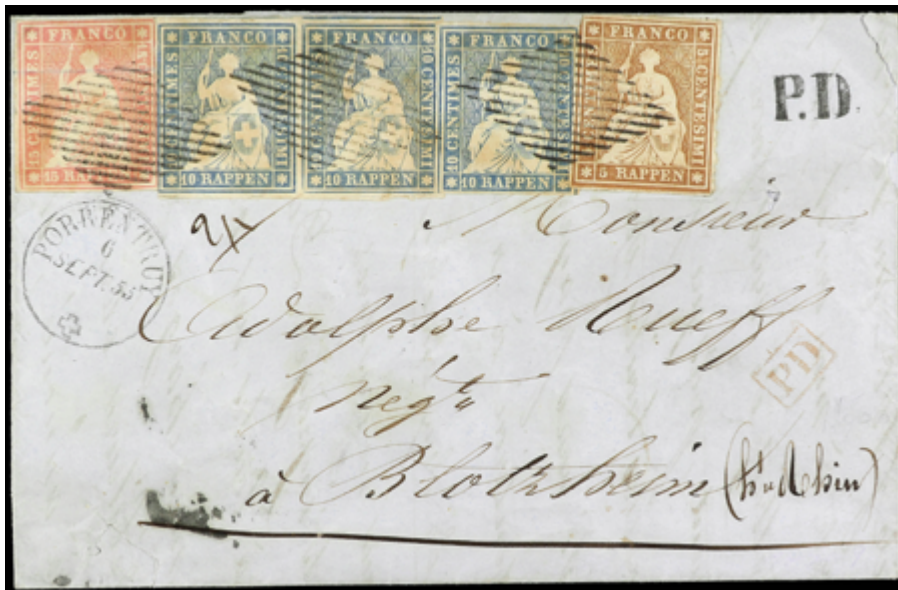 FRANCO 15 CENTIMES 15 RAPPEN
FRANCO 10 CENTIMES 10 CENTESIMI 10 RAPPEN
FRANCO 10 CENTIMES 10 CENTESIMI 10 RAPPEN
FRANCO 10 CENTIMES 10 RAPPEN
FRANCO 5 CENTESIMI 5 RAPPEN
P.D.
PORRENTRUY
6
SEPT. 55
Monsieur
Adolphe Rueff
PD
négt
à Blotzheim (ht Rhin)